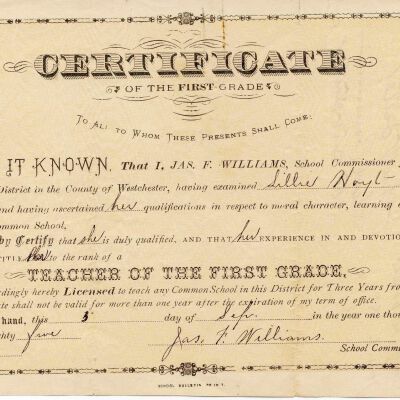 CERTIFICATE
OF THE FIRST GRADE
TO ALL TO WHOM THESE PRESENTS SHALL COME:
IT KNOWN, That I, JAS. F. WILLIAMS, School Commissioner
District in the County of Westchester, having examined Lillie Hoyt
and having ascertained her qualifications in respect to moral character, learning
ommon School,
by Certify that she is duly qualified, AND THAT her EXPERIENCE IN AND DEVOTIO
ITLE her to the rank of a
TEACHER OF THE FIRST GRADE,
rdingly hereby Licensed to teach any Common School in this District for Three Years fro
ate shall not be valid for more than one year after the expiration of my term of office.
hand, this 5 day of Sep. in the year one thou
ghty five
Jas. F. Williams.
School Commi
SCHOOL BULLETIN PRINT.